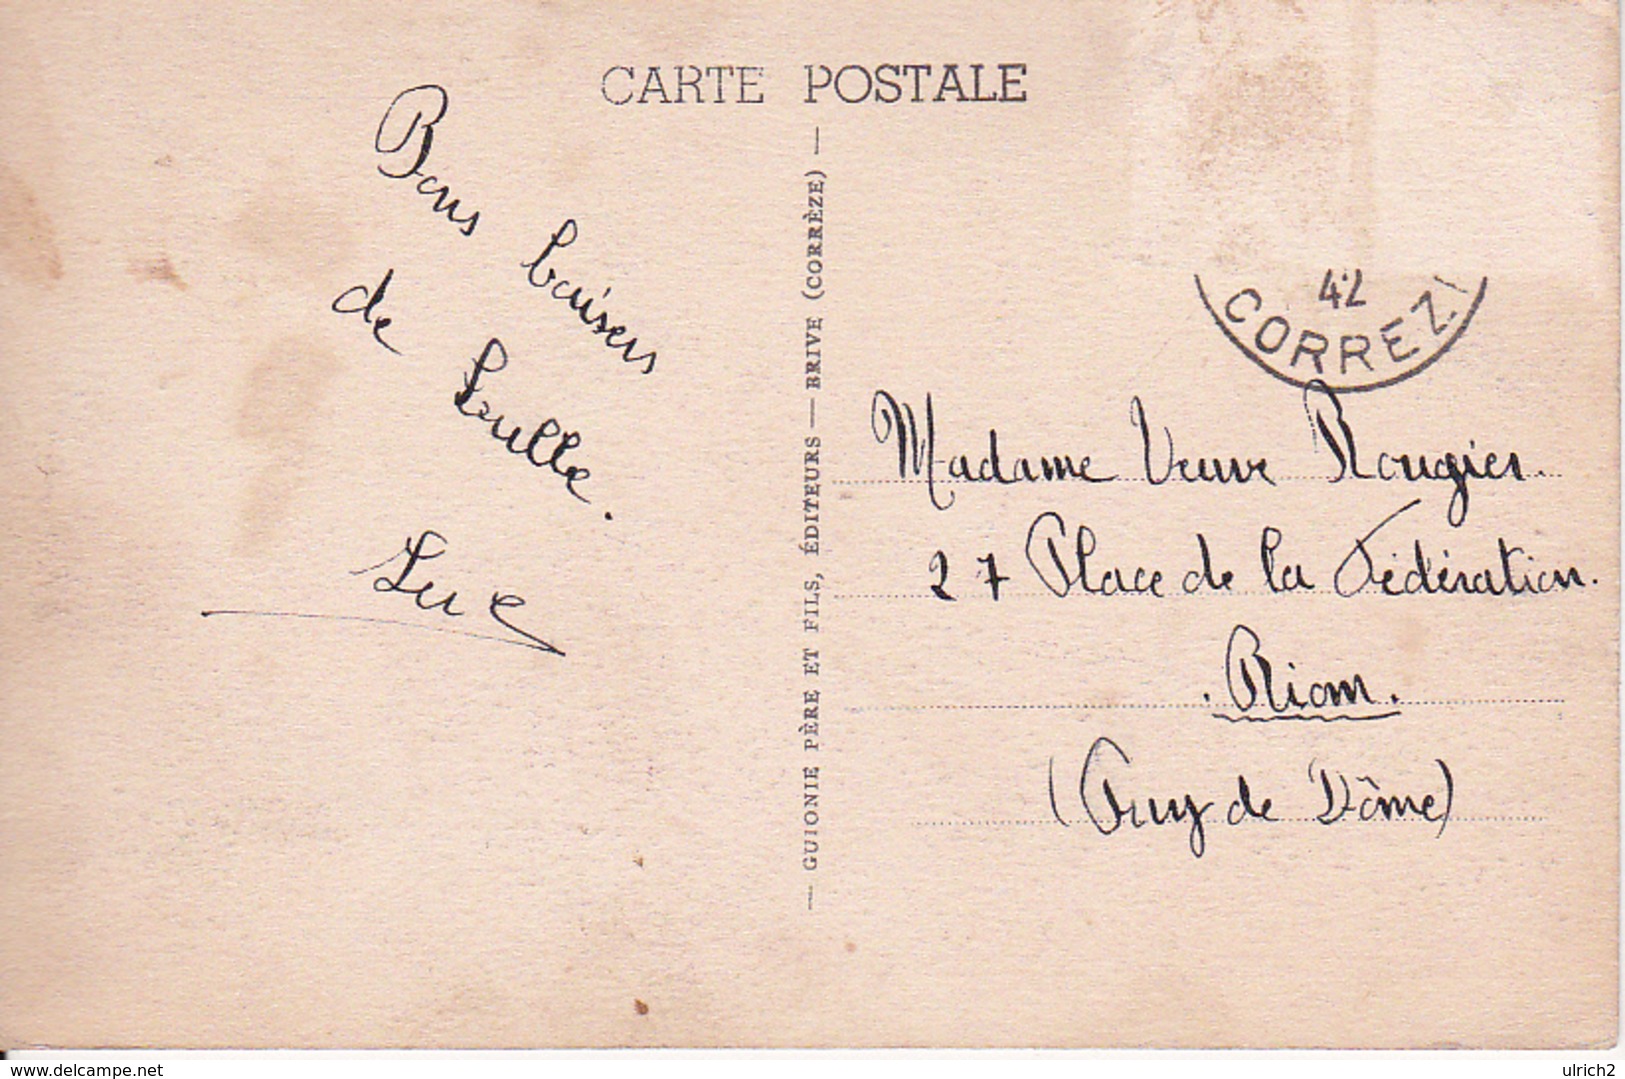 CARTE POSTALE
Bons baisers
de Naulle.
Luc
— GUIONIE PÈRE ET FILS, ÉDITEURS — BRIVE (CORRÈZE) —
42
CORREZ
Madame Veuve Rougier.
27 Place de la Fédération.
. Riom .
(Puy de Dôme)
www.delcampe.net
ulrich2